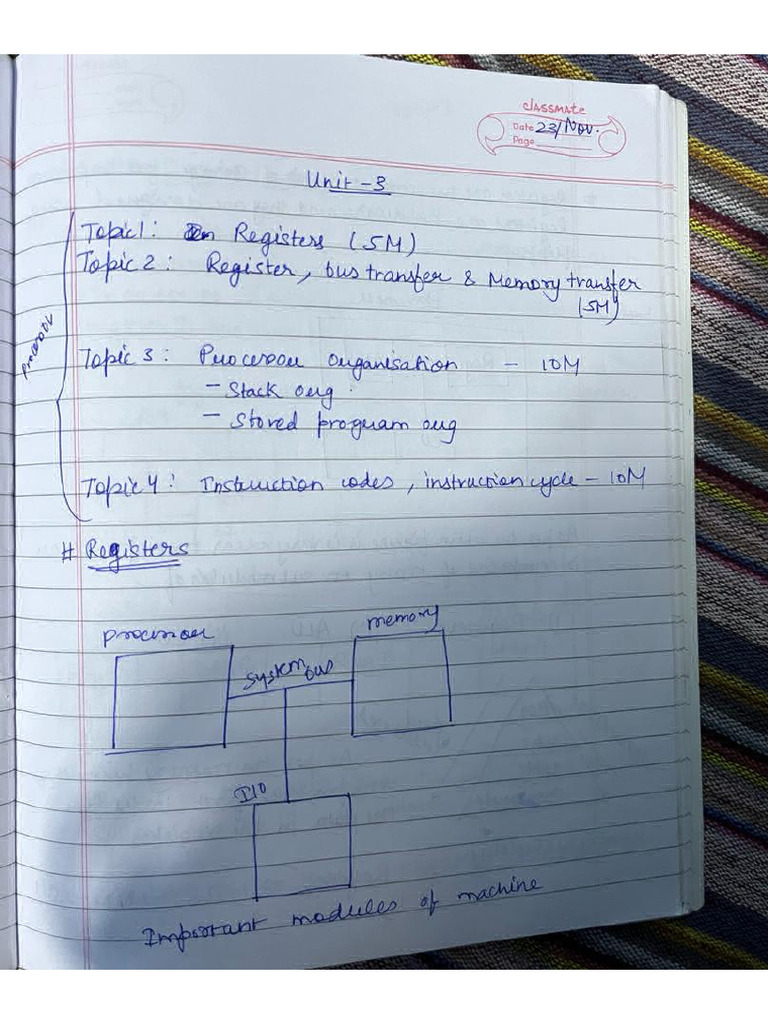 classmate
Date 23/Nov.
Page
Unit -3
Topic 1: Registers (5M)
Topic 2: Register, bus transfer & Memory transfer
(5M)
Topic 3: Processor organisation - 10M
- Stack org.
- Stored program org
Topic 4: Instruction codes, instruction cycle - 10M
processor
# Registers
processor
memory
System bus
I/O
Important modules of machine